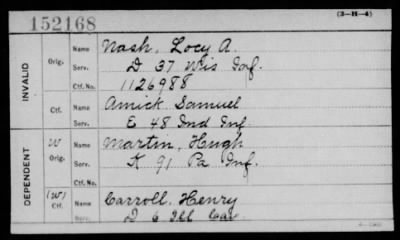 152168
(3-H-4)
INVALID
Orig.
Name Nash, Locy A.
Serv. D 37 Wis Inf.
Ctf. No. 1126988
Ctf.
Name Amick Samuel
Serv. E 48 Ind Inf
DEPENDENT
W
Orig.
Name Martin, Hugh
Serv. K 91 Pa Inf.
Ctf. No.
(W)
Ctf.
Name Carroll, Henry
Serv. D 6 Ill Cav